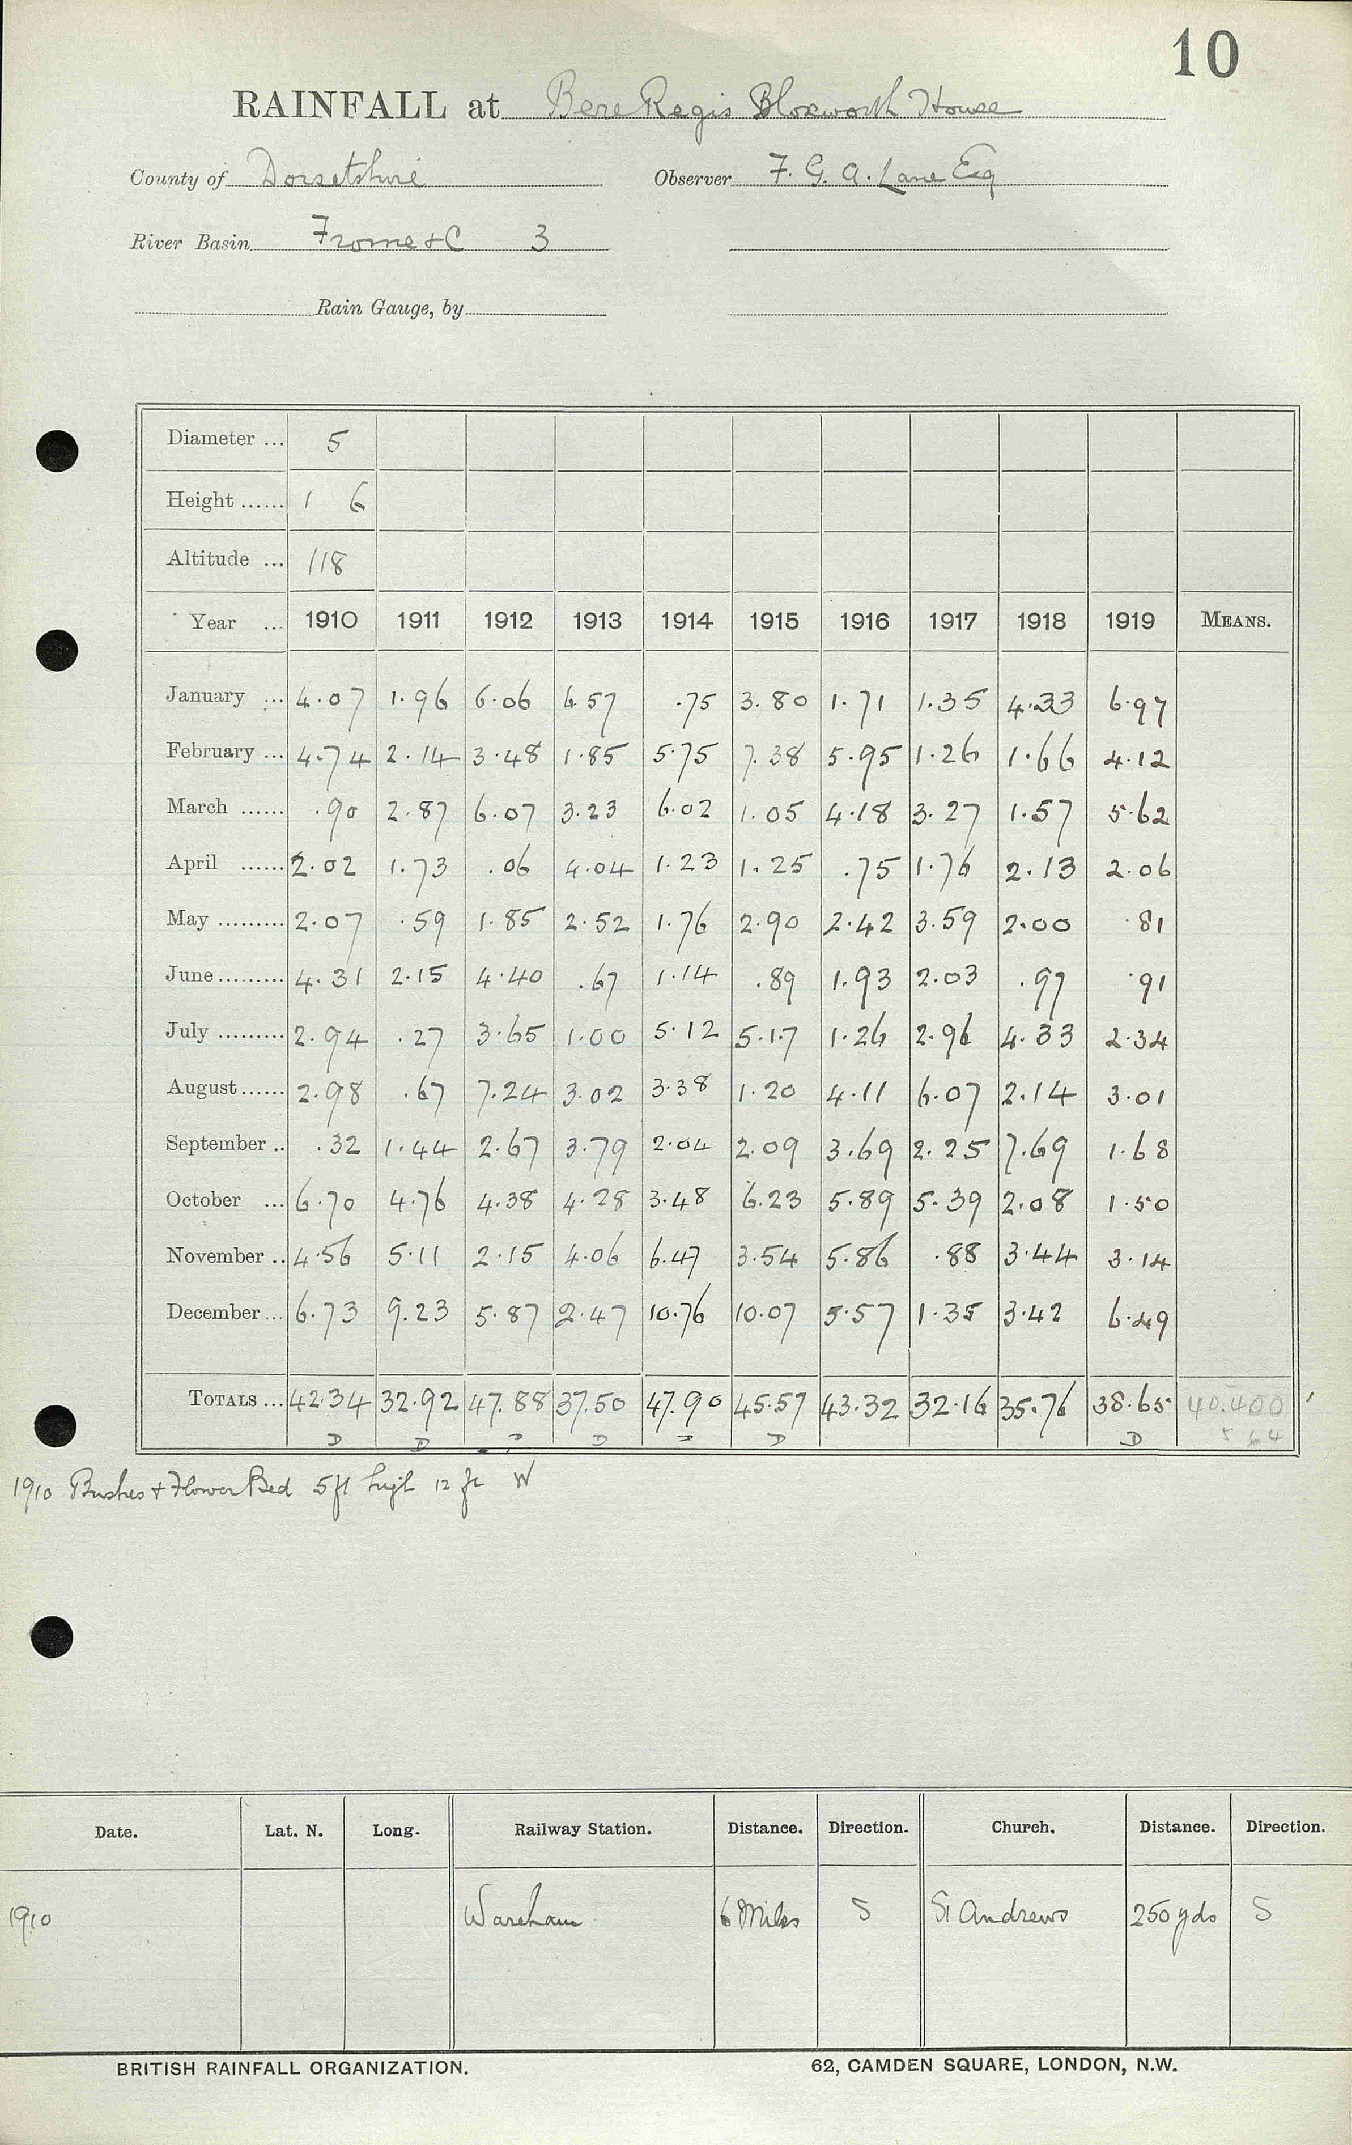 10
RAINFALL at Bere Regis Bloxworth House
County of Dorsetshire Observer F. G. A. Lane Esq
River Basin Frome &c 3
Rain Gauge, by
Diameter ... 5
Height ...... 1 6
Altitude ... 118
Year ... 1910 1911 1912 1913 1914 1915 1916 1917 1918 1919 MEANS.
January ... 4.07 1.96 6.06 6.57 .75 3.80 1.71 1.35 4.33 6.97
February ... 4.74 2.14 3.48 1.85 5.75 7.38 5.95 1.26 1.66 4.12
March ...... .90 2.87 6.07 3.23 6.02 1.05 4.18 3.27 1.57 5.62
April ...... 2.02 1.73 .06 4.04 1.23 1.25 .75 1.76 2.13 2.06
May ......... 2.07 .59 1.85 2.52 1.76 2.90 2.42 3.59 2.00 .81
June ......... 4.31 2.15 4.40 .67 1.14 .89 1.93 2.03 .97 .91
July ......... 2.94 .27 3.65 1.00 5.12 5.17 1.26 2.96 4.33 2.34
August ...... 2.98 .67 7.24 3.02 3.38 1.20 4.11 6.07 2.14 3.01
September .. .32 1.44 2.67 3.79 2.04 2.09 3.69 2.25 7.69 1.68
October ... 6.70 4.76 4.38 4.28 3.48 6.23 5.89 5.39 2.08 1.50
November .. 4.56 5.11 2.15 4.06 6.47 3.54 5.86 .88 3.44 3.14
December ... 6.73 9.23 5.87 2.47 10.76 10.07 5.57 1.35 3.42 6.49
TOTALS ... 42.34 32.92 47.88 37.50 47.90 45.57 43.32 32.16 35.76 38.65 40.400
D D D D D D
1910 Bushes & Flower Bed 5 ft high 12 ft W
Date. Lat. N. Long. Railway Station. Distance. Direction. Church. Distance. Direction.
1910 Wareham 6 Miles S St Andrews 250 yds S
BRITISH RAINFALL ORGANIZATION. 62, CAMDEN SQUARE, LONDON, N.W.